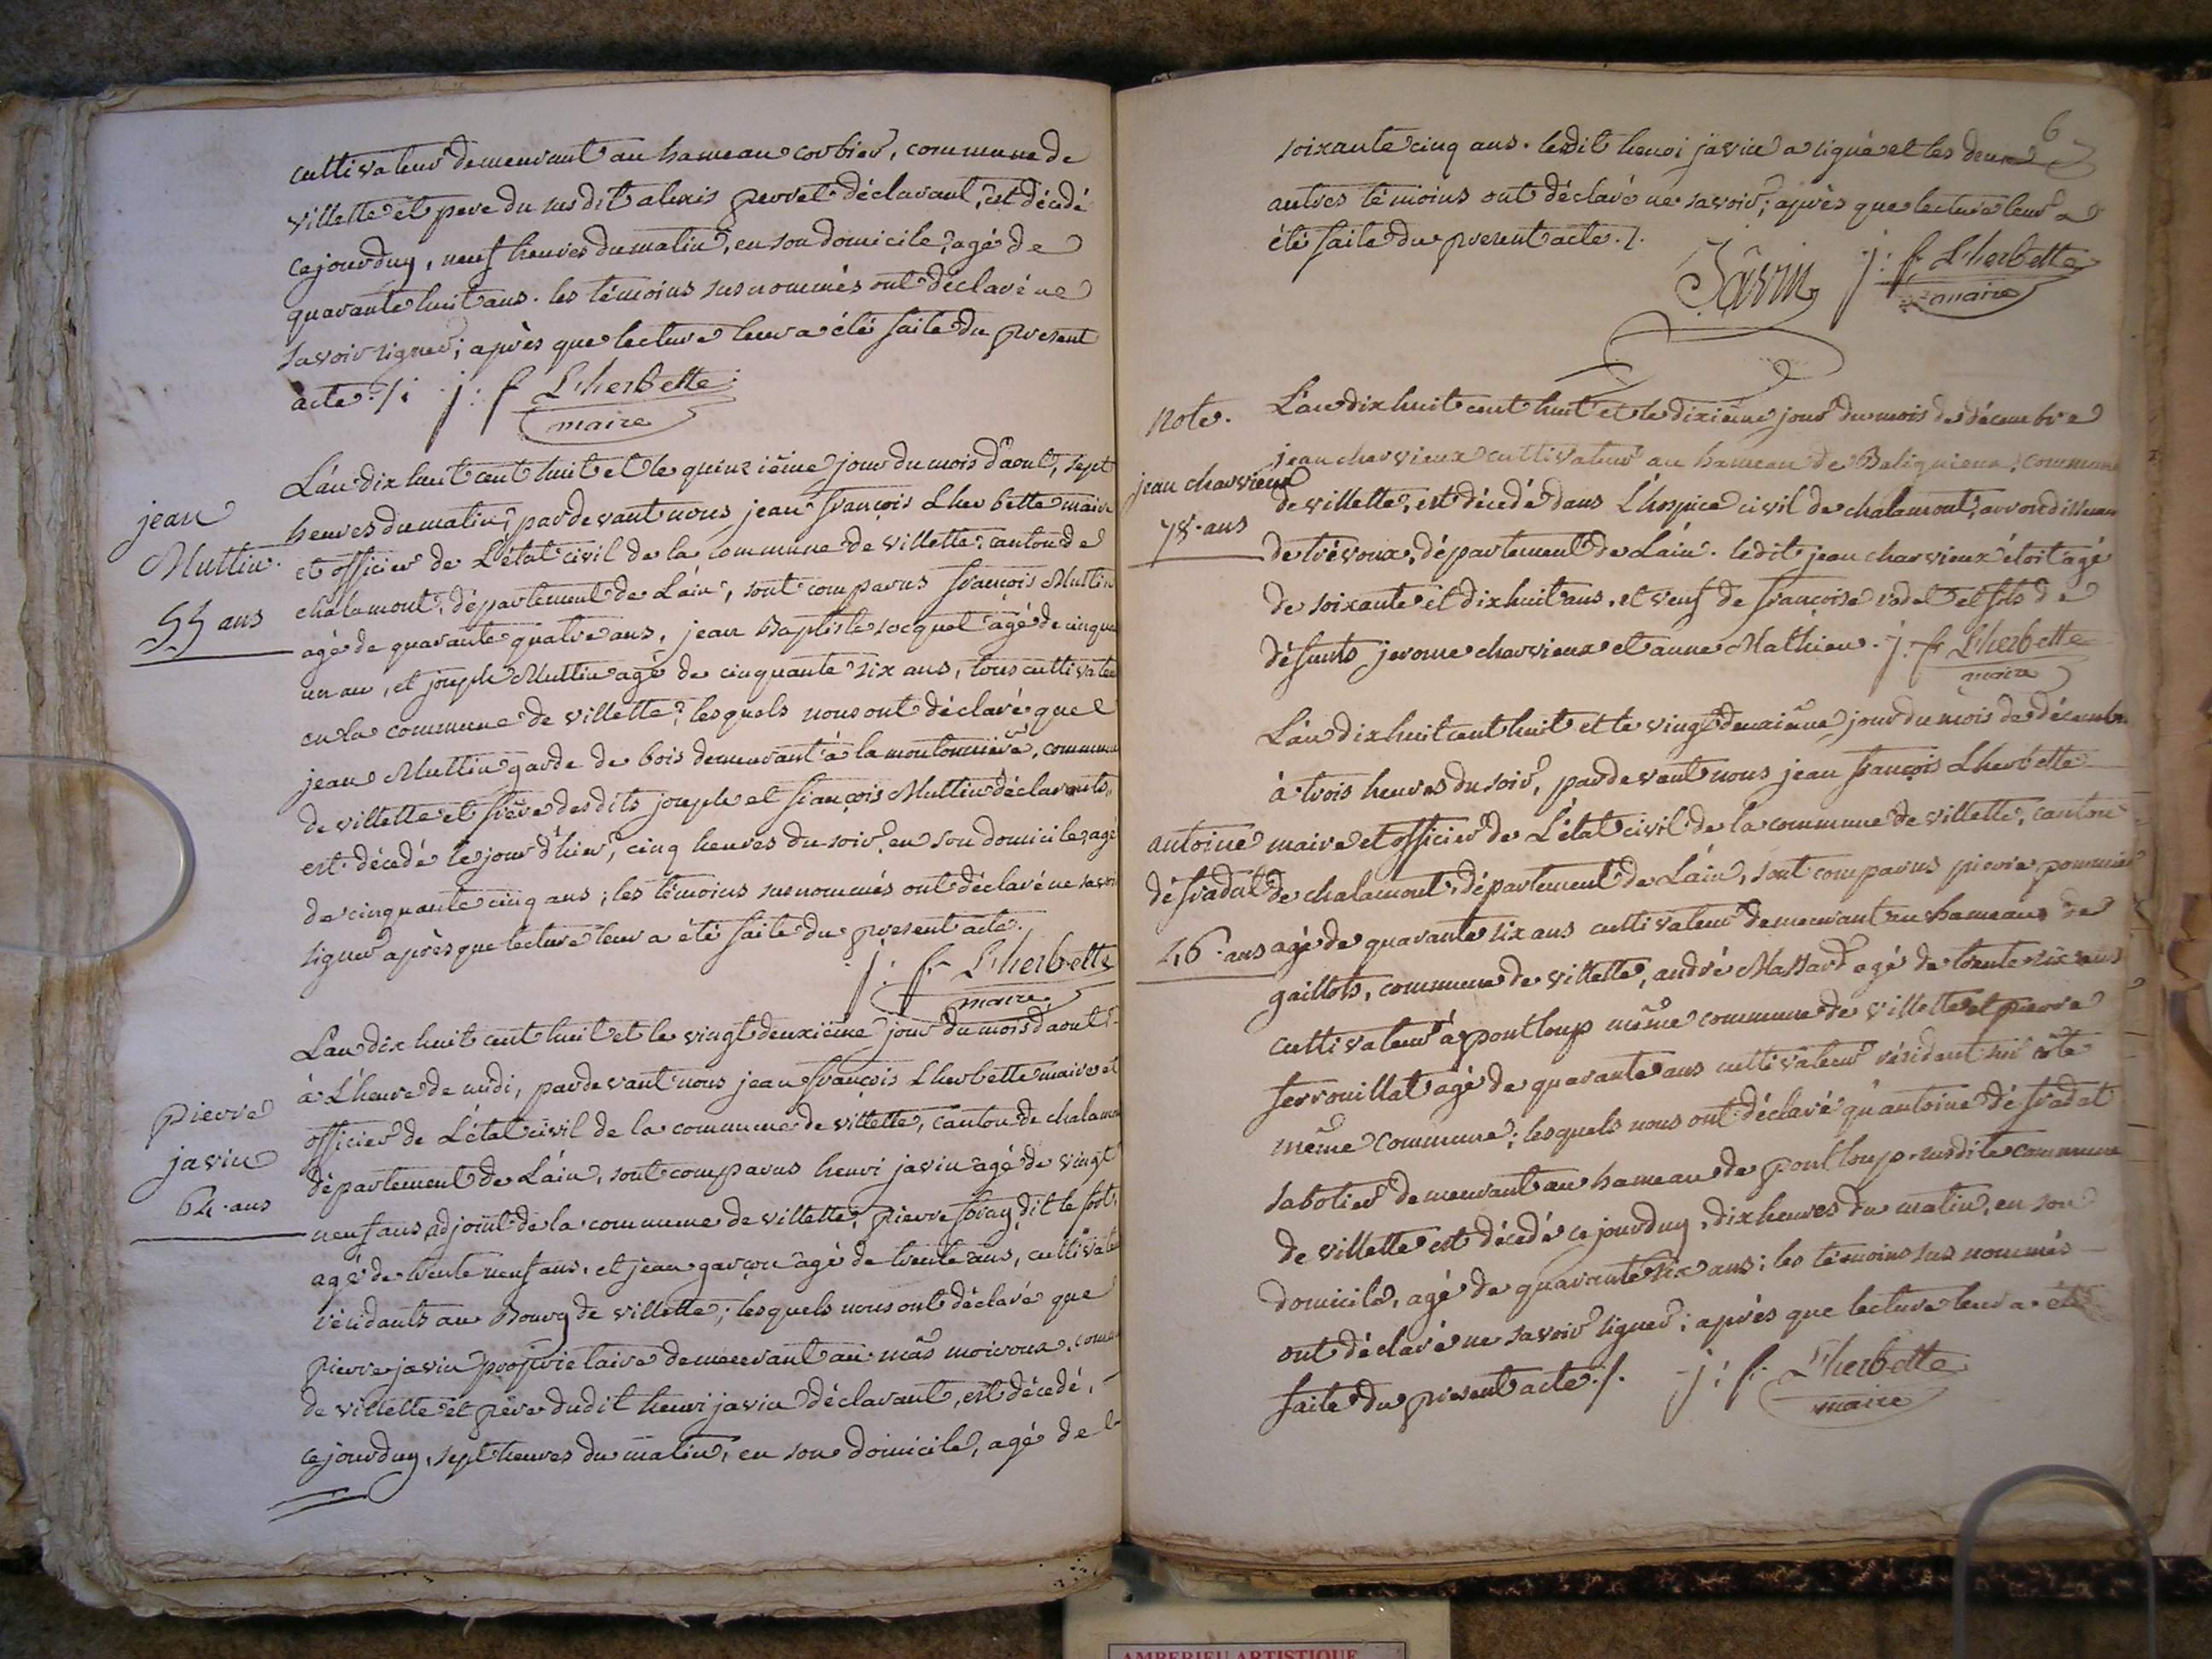 cultivateur demeurant au hameau corbier, commune de
villette et pere du susdit alexis perret déclarant, est décédé
cejourduy, neuf heures du matin, en son domicile, agé de
quarante huit ans. les témoins susnommés ont déclaré ne
savoir signer; après que lecture leur a été faite du present
acte ./.
j: f Lherbette
maire
jean
Muttin.
55 ans
L'an dix huit cent huit et le quinzième jour du mois d'aout, sept
heures du matin, pardevant nous jean françois Lherbette maire
et officier de L'état civil de la commune de villette, canton de
chalamont, département de L'ain, sont comparus françois Muttin
agé de quarante quatre ans, jean Baptiste socquet agé de cinquan
un an, et joseph Muttin agé de cinquante six ans, tous cultivateu
en la commune de villette, lesquels nous ont déclaré que
jean Muttin garde de bois demeurant à la moutonnière, commune
de villette et frère desdits joseph et françois Muttin déclarants,
est décédé le jour d'hier, cinq heures du soir, en son domicile, agé
de cinquante cinq ans; les témoins susnommés ont déclaré ne savoir
signer après que lecture leur a été faite du present acte.
j: f- Lherbette
maire
pierre
javin
64. ans
L'an dix huit cent huit et le vingt deuxième jour du mois d'aout
à L'heure de midi, pardevant nous jean françois Lherbette maire et
officier de L'état civil de la commune de villette, canton de chalamon
département de L'ain, sont comparus henri javin agé de vingt
neuf ans, adjoint de la commune de villette, pierre foray dit le fort,
agé de trente neuf ans, et jean garçon agé de trente ans, cultivate
résidants au Bourg de villette; lesquels nous ont déclaré que
pierre javin proprietaire demeurant au mâs moiroux, comm
de villette et père dudit henri javin déclarant, est décédé,
cejourduy, sept heures du matin, en son domicile, agé de
6
soixante cinq ans. ledit henri javin a signé et les deux
autres témoins ont déclaré ne savoir; après que lecture leur a
été faite du present acte ./.
Javin j: f. Lherbette
maire
Note.
jean charvieux
78. ans
L'an dix huit cent huit et le dixième jour du mois de décembre
jean charvieux cultivateur au hameau de Balignieux, commune
de villette, est décédé dans L'hospice civil de chalamont, arrondissemen
de trévoux, département de L'ain. ledit jean charvieux étoit agé
de soixante et dixhuit ans, et veuf de françoise vadet et fils de
défunts jerome charvieux et anne Mathieu. j. f Lherbette
maire
antoine
défradat
46. ans
L'an dixhuitcent huit et le vingt deuxième jour du mois de décembre
à trois heures du soir, pardevant nous jean françois Lherbette
maire et officier de L'état civil de la commune de villette, canton
de chalamont, département de L'ain, sont comparus pierre pommier
agé de quarante six ans cultivateur demeurant au hameau de
gaillots, commune de villette, andré Massard agé de trente six ans
cultivateur à pontloup même commune de villette et pierre
ferrouillat agé de quarante ans cultivateur résidant sur côte
même commune; lesquels nous ont déclaré qu'antoine défradat
sabotier demeurant au hameau de pontloup susdite commune
de villette est décédé cejourduy, dix heures du matin, en son
domicile, agé de quarante six ans; les témoins sus nommés
ont déclaré ne savoir signer; après que lecture leur a été
faite du present acte ./. j: f: Lherbette
maire
AMBERIEU ARTISTIQUE